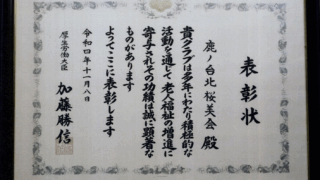 表彰状
鹿ノ台北桜美会 殿
貴クラブは多年にわたり積極的な
活動を通じて老人福祉の増進に
寄与されその功績は誠に顕著な
ものがあります
よってここに表彰します
令和四年十一月八日
厚生労働大臣 加藤勝信